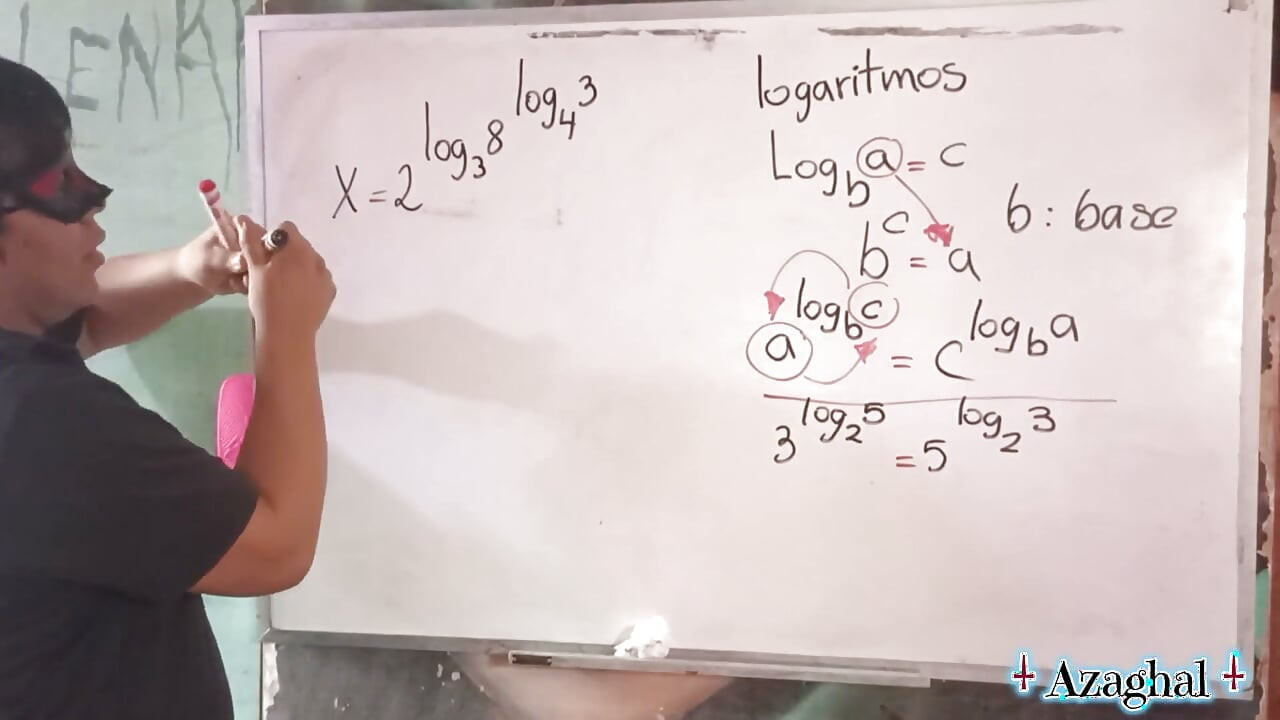 LENK
X = 2^log₃8^log₄3
logaritmos
Log_b a = c
b : base
b^c = a
a^log_b c = c^log_b a
3^log₂5 = 5^log₂3
Azaghal